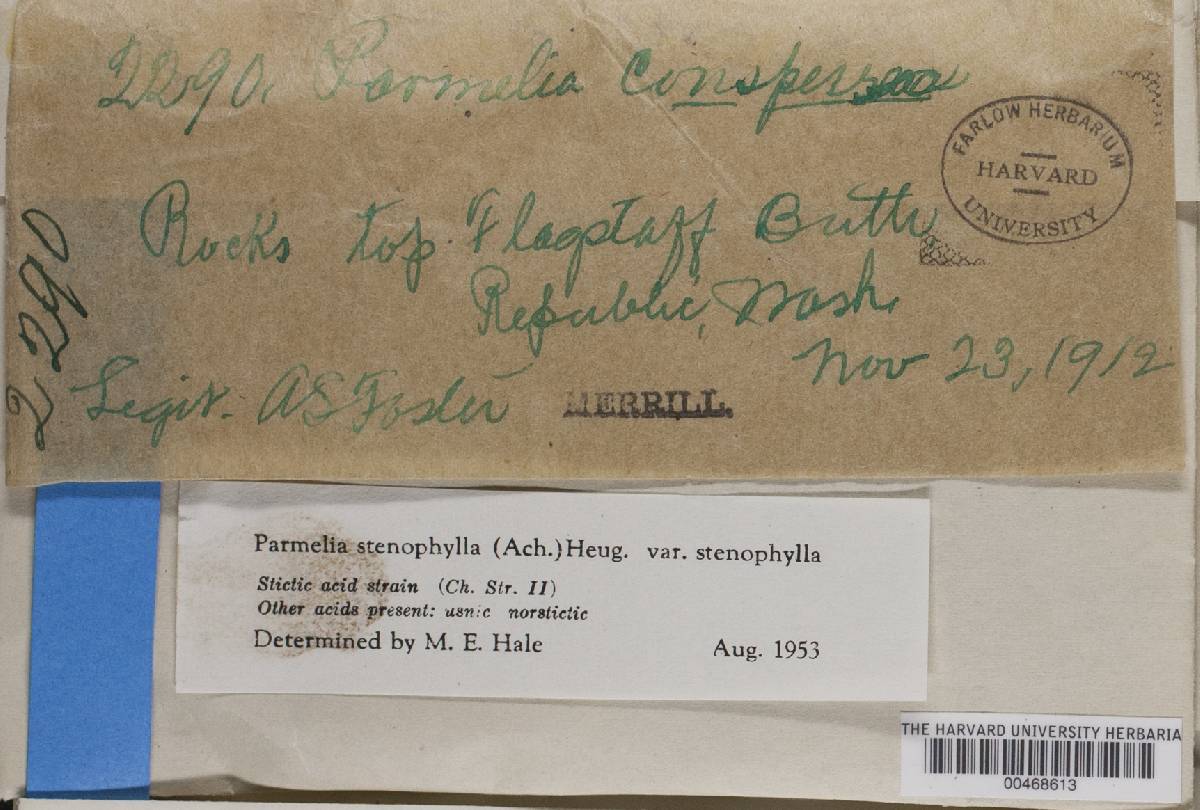 2290. Parmelia conspersa
FARLOW HERBARIUM
HARVARD
UNIVERSITY
Rocks top Flagstaff Butte
Republic, Wash.
Nov 23, 1912
2290
Legit. A S Foster
MERRILL.
Parmelia stenophylla (Ach.) Heug. var. stenophylla
Stictic acid strain (Ch. Str. II)
Other acids present: usnic norstictic
Determined by M. E. Hale Aug. 1953
THE HARVARD UNIVERSITY HERBARIA
00468613